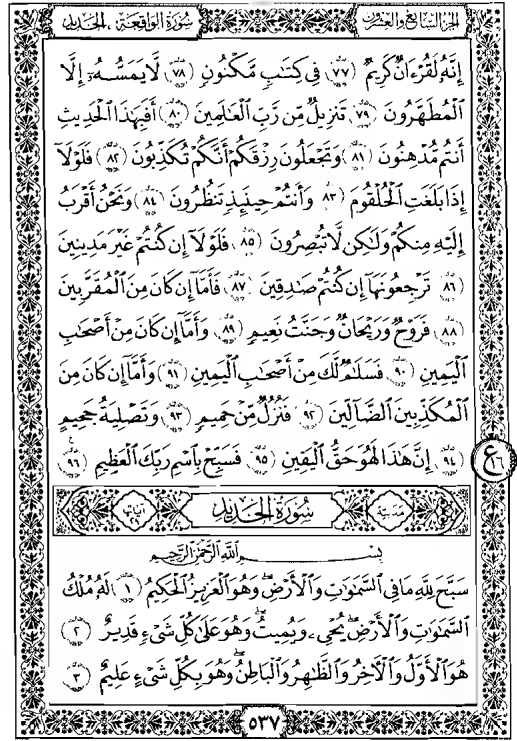 الجزء السابع والعشرون
سورة الواقعة ، الحديد
إِنَّهُۥ لَقُرْءَانٌ كَرِيمٌ ﴿٧٧﴾ فِى كِتَٰبٍ مَّكْنُونٍ ﴿٧٨﴾ لَّا يَمَسُّهُۥٓ إِلَّا
ٱلْمُطَهَّرُونَ ﴿٧٩﴾ تَنزِيلٌ مِّن رَّبِّ ٱلْعَٰلَمِينَ ﴿٨٠﴾ أَفَبِهَٰذَا ٱلْحَدِيثِ
أَنتُم مُّدْهِنُونَ ﴿٨١﴾ وَتَجْعَلُونَ رِزْقَكُمْ أَنَّكُمْ تُكَذِّبُونَ ﴿٨٢﴾ فَلَوْلَآ
إِذَا بَلَغَتِ ٱلْحُلْقُومَ ﴿٨٣﴾ وَأَنتُمْ حِينَئِذٍ تَنظُرُونَ ﴿٨٤﴾ وَنَحْنُ أَقْرَبُ
إِلَيْهِ مِنكُمْ وَلَٰكِن لَّا تُبْصِرُونَ ﴿٨٥﴾ فَلَوْلَآ إِن كُنتُمْ غَيْرَ مَدِينِينَ
﴿٨٦﴾ تَرْجِعُونَهَآ إِن كُنتُمْ صَٰدِقِينَ ﴿٨٧﴾ فَأَمَّآ إِن كَانَ مِنَ ٱلْمُقَرَّبِينَ
﴿٨٨﴾ فَرَوْحٌ وَرَيْحَانٌ وَجَنَّتُ نَعِيمٍ ﴿٨٩﴾ وَأَمَّآ إِن كَانَ مِنْ أَصْحَٰبِ
ٱلْيَمِينِ ﴿٩٠﴾ فَسَلَٰمٌ لَّكَ مِنْ أَصْحَٰبِ ٱلْيَمِينِ ﴿٩١﴾ وَأَمَّآ إِن كَانَ مِنَ
ٱلْمُكَذِّبِينَ ٱلضَّآلِّينَ ﴿٩٢﴾ فَنُزُلٌ مِّنْ حَمِيمٍ ﴿٩٣﴾ وَتَصْلِيَةُ جَحِيمٍ
﴿٩٤﴾ إِنَّ هَٰذَا لَهُوَ حَقُّ ٱلْيَقِينِ ﴿٩٥﴾ فَسَبِّحْ بِٱسْمِ رَبِّكَ ٱلْعَظِيمِ ﴿٩٦﴾
ع ١٦
مدنية سورة الحديد آياتها ٢٩
بسم الله الرحمن الرحيم
سَبَّحَ لِلَّهِ مَا فِى ٱلسَّمَٰوَٰتِ وَٱلْأَرْضِ ۖ وَهُوَ ٱلْعَزِيزُ ٱلْحَكِيمُ ﴿١﴾ لَهُۥ مُلْكُ
ٱلسَّمَٰوَٰتِ وَٱلْأَرْضِ ۖ يُحْىِۦ وَيُمِيتُ ۖ وَهُوَ عَلَىٰ كُلِّ شَىْءٍ قَدِيرٌ ﴿٢﴾
هُوَ ٱلْأَوَّلُ وَٱلْءَاخِرُ وَٱلظَّٰهِرُ وَٱلْبَاطِنُ ۖ وَهُوَ بِكُلِّ شَىْءٍ عَلِيمٌ ﴿٣﴾
٥٣٧